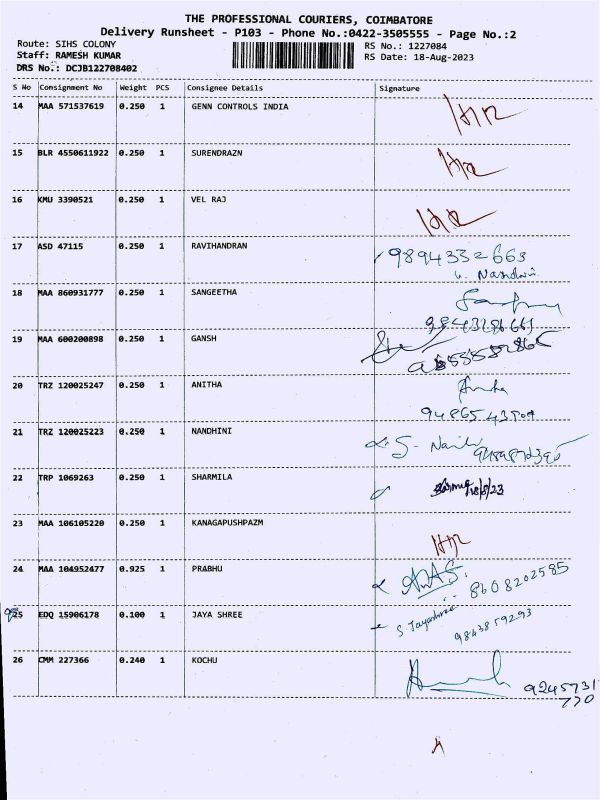 THE PROFESSIONAL COURIERS, COIMBATORE
Delivery Runsheet - P103 - Phone No.:0422-3505555 - Page No.:2
Route: SIHS COLONY RS No.: 1227084
Staff: RAMESH KUMAR RS Date: 18-Aug-2023
DRS No.: DCJB122708402
S No Consignment No Weight PCS Consignee Details Signature
14 MAA 571537619 0.250 1 GENN CONTROLS INDIA
15 BLR 4550611922 0.250 1 SURENDRAZN
16 KMU 3390521 0.250 1 VEL RAJ
17 ASD 47115 0.250 1 RAVIHANDRAN 9894332663
18 MAA 860931777 0.250 1 SANGEETHA
19 MAA 600200898 0.250 1 GANSH
20 TRZ 120025247 0.250 1 ANITHA
21 TRZ 120025223 0.250 1 NANDHINI
22 TRP 1069263 0.250 1 SHARMILA 18/8/23
23 MAA 106105220 0.250 1 KANAGAPUSHPAZM
24 MAA 104952477 0.925 1 PRABHU 8608202585
25 EDQ 15906178 0.100 1 JAYA SHREE S. Jayashree
9843859293
26 CMM 227366 0.240 1 KOCHU
9245731
770